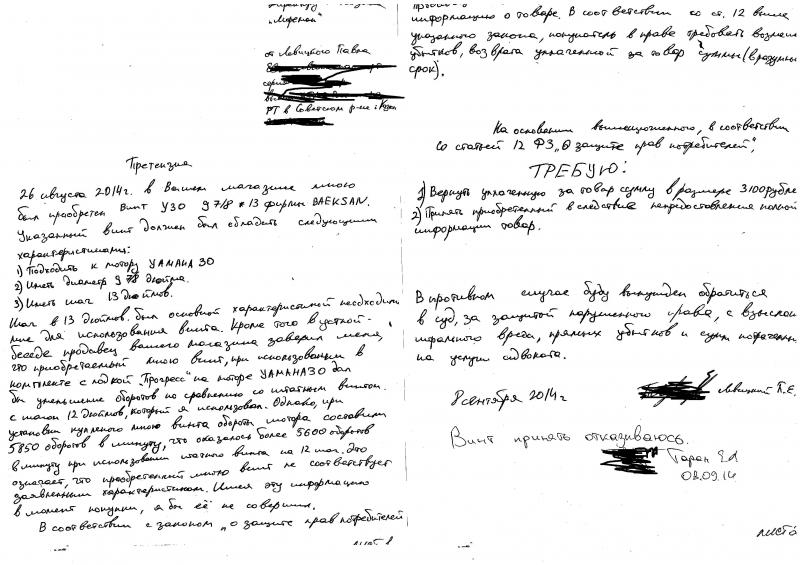 "Мореман"
от Левицкого Павла
РТ в Советском р-не г. Казан
Претензия
26 августа 2014г. в Вашем магазине мною
был приобретен Винт У30 9 7/8 * 13 фирмы BAEKSAN.
Указанный винт должен был обладать следующими
характеристиками:
1) Подходить к мотору YAMAHA 30
2) Иметь диаметр 9 7/8 дюйма.
3) Иметь шаг 13 дюймов.
Шаг в 13 дюймов. был основной характеристикой необходи
мые для использования винта. Кроме того в устной-
беседе продавец вашего магазина заверил меня,
что приобретаемый мною винт, при использовании в
комплекте с лодкой „Прогресс" на моторе YAMAHA30 дал
бы уменьшение оборотов по сравнению со штатным винтом
с шагом 12 дюймов, который я использовал. Однако, при
установки купленого мною винта обороты мотора составили
5850 оборотов в минуту, что оказалось более 5600 оборотов
в минуту при использовании штатного винта на 12 шаг. Это
означает, что приобретенный мною винт не соответствует
заявленным характеристикам. Имея эту информацию
в момент покупки, я бы её не совершил.
В соответствии с законом „о защите прав потребителей
лист 1
информацию о товаре. В соответствии со ст. 12 выше
указанного закона, покупатель в праве требовать возмещ
убытков, возврата уплаченной за товар суммы (в разумны
срок).
На основании вышеизложенного, в соответствии
со статьей 12 ФЗ „О защите прав потребителей",
ТРЕБУЮ:
1) Вернуть уплаченную за товар сумму в размере 3100 рубле
2) Принять приобретенный в следствие непредоставления полной
информации товар.
В противном случае буду вынужден обратиться
в суд, за защитой нарушенного права, с взыскан
морального вреда, прямых убытков и сумм потраченны
на услуги адвоката.
8 сентября 2014г
Левицкий П.Е.
Винт принять отказываюсь.
Гаран ЕА
08.09.14
лист 2